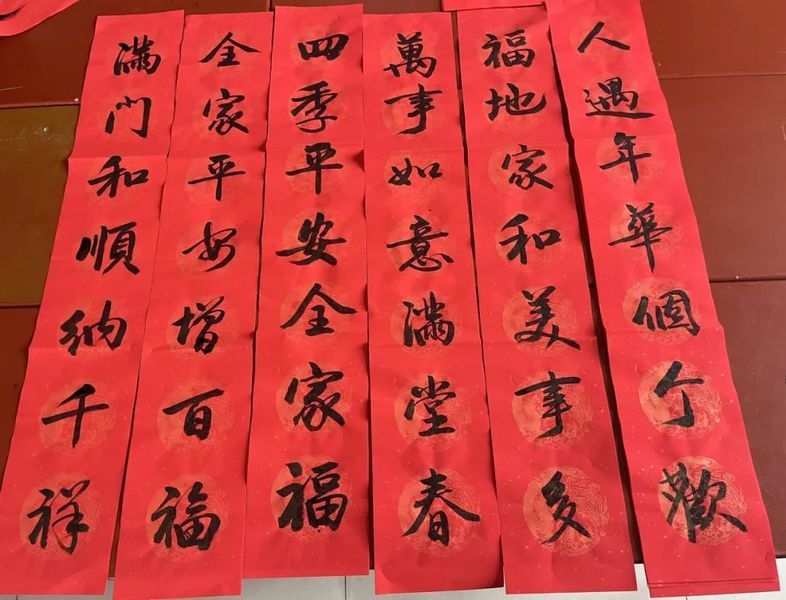 人遇年華個个歡
福地家和美事多
萬事如意滿堂春
四季平安全家福
全家平安增百福
滿門和順納千祥